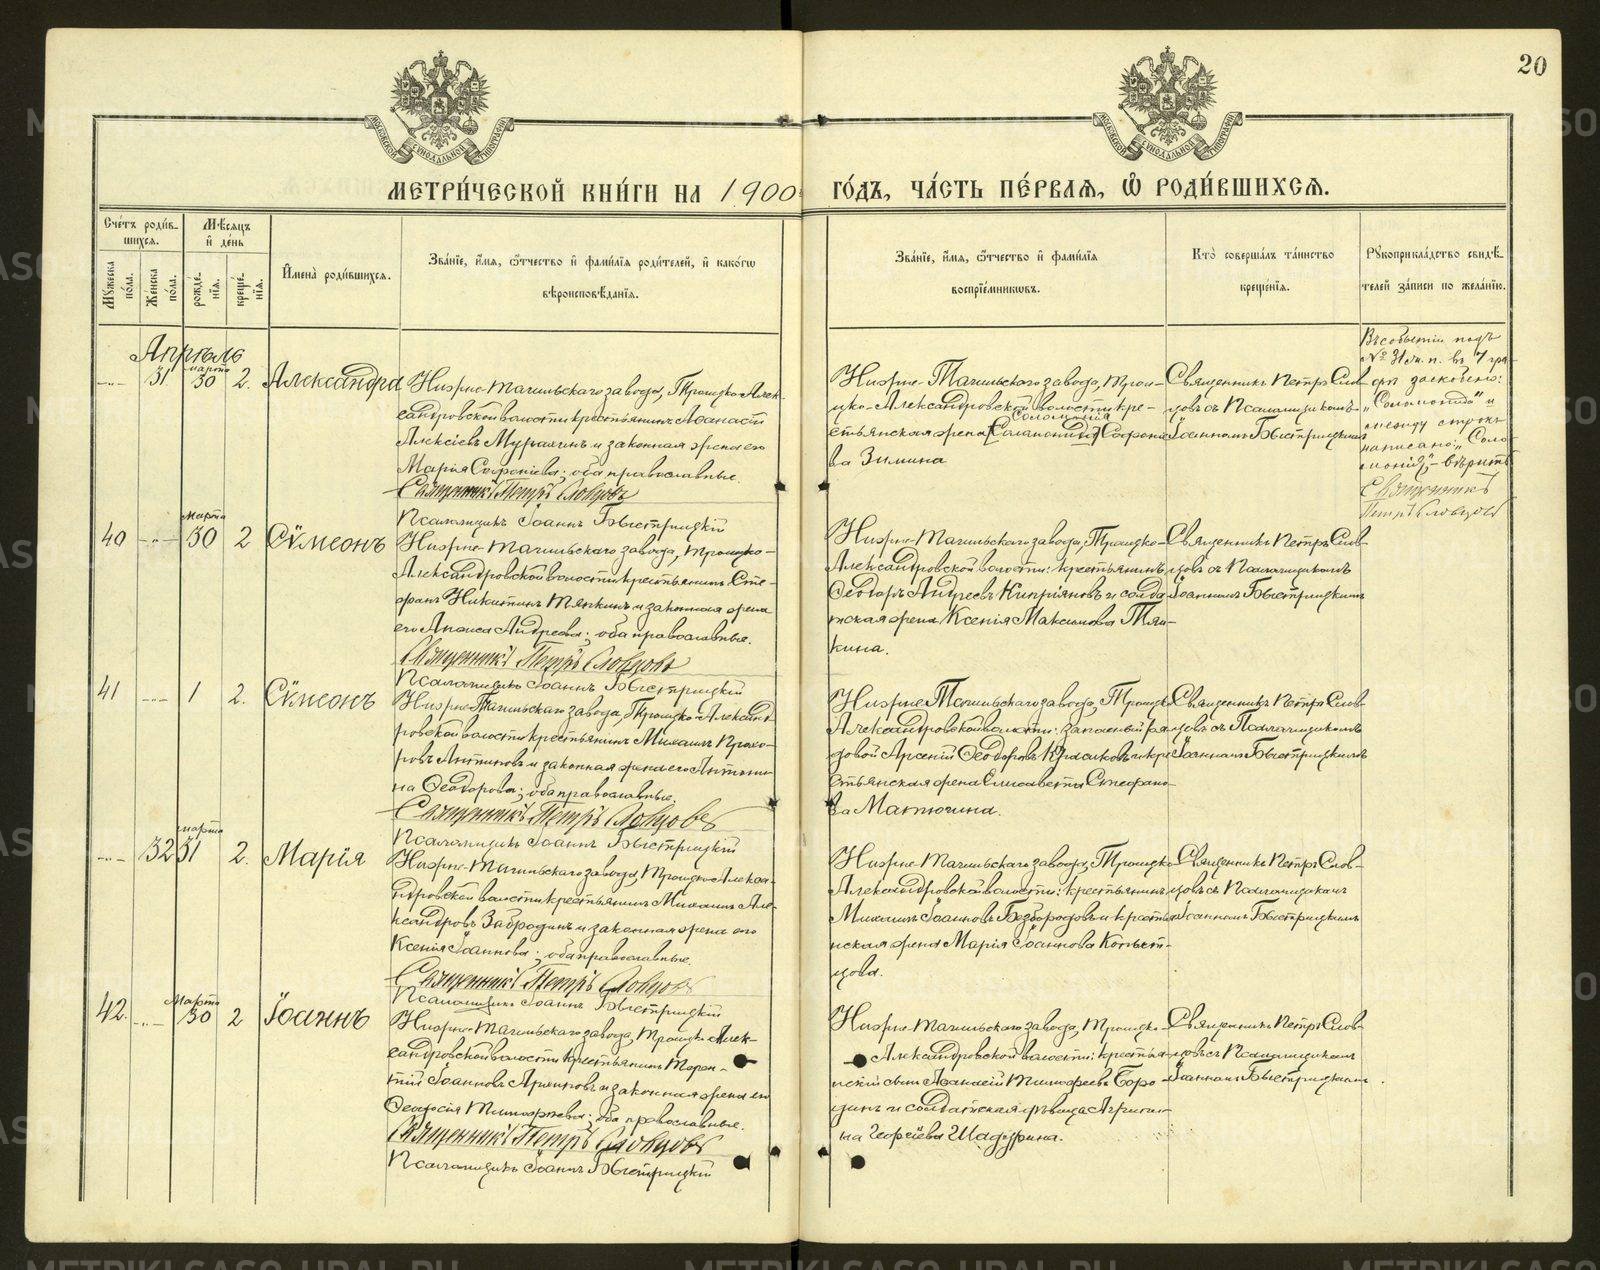 20
МОСКОВСКОЙ СѴНОДАЛЬНОЙ ТИПОГРАФІИ
МОСКОВСКОЙ СѴНОДАЛЬНОЙ ТИПОГРАФІИ
МЕТРИ́ЧЕСКОЙ КНИ́ГИ НА 1900 ГО́ДЪ, ЧА́СТЬ ПЕ́РВАѦ, Ѡ҆ РОДИ́ВШИХСѦ.
Сче́тъ роди́в-
шихсѧ.
Мꙋ́жеска по́ла.
Же́нска по́ла.
Мѣ́сѧцъ
и҆ де́нь
рожде́-
нїѧ.
креще́-
нїѧ.
И҆мена̀ роди́вшихсѧ.
Зва́нїе, и҆́мѧ, ѻ҆́тчество и҆ фами́лїѧ роди́телей, и҆ како́гѡ
вѣроисповѣ́данїѧ.
Зва́нїе, и҆́мѧ, ѻ҆́тчество и҆ фами́лїѧ
воспрїе́мникѡвъ.
Кто̀ соверша́лъ та́инство
креще́нїѧ.
Рꙋкоприкла́дство свидѣ́-
телей за́писи по жела́нїю.
Апрѣль
31.
марта
30
2.
Александра
Нижне-Тагильскаго завода, Троицко-Алек-
сандровской волости крестьянинъ Аѳанасій
Алексіевъ Мурзинъ и законная жена его
Марія Софоніева; оба православные.
Священникъ Петръ Словцовъ
Псаломщикъ Іоаннъ Быстрицкій
Нижне-Тагильскаго завода, Трои-
цко-Александровской волости кре-
Соломонія
стьянская жена Софоніе-
ва Зимина
Священникъ Петръ Слов-
цовъ съ Псаломщикомъ
Іоанномъ Быстрицкимъ
Въ событіи подъ
№ 31 ж. п. въ 4 гра-
фѣ заскоблено:
"Соломонида" и
между строкъ
написано: "Соло-
монія" – вѣрить
Священникъ
Петръ Словцовъ
40
марта
30
2
Сѵмеонъ
Нижне-Тагильскаго завода, Троицко-
Александровской волости крестьянинъ Сте-
фанъ Никитинъ Тяпкинъ и законная жена
его Анисія Андреева; оба православные.
Священникъ Петръ Словцовъ
Псаломщикъ Іоаннъ Быстрицкій
Нижне-Тагильскаго завода, Троицко-
Александровской волости: крестьянинъ
Ѳеодоръ Андреевъ Кипріяновъ и солда-
тская жена Ксенія Максимова Тяп-
кина.
Священникъ Петръ Слов-
цовъ съ Псаломщикомъ
Іоанномъ Быстрицкимъ
41
1
2.
Сѵмеонъ
Нижне-Тагильскаго завода, Троицко-Александ-
ровской волости крестьянинъ Михаилъ Прохо-
ровъ Антиповъ и законная жена его Антони-
на Ѳеодорова; оба православные.
Священникъ Петръ Словцовъ
Псаломщикъ Іоаннъ Быстрицкій
Нижне-Тагильскаго завода, Троицко-
Александровской волости: запасный ря-
довой Арсеній Ѳеодоровъ Красиковъ и кре-
стьянская жена Елисавета Стефано-
ва Матюгина.
Священникъ Петръ Слов-
цовъ съ Псаломщикомъ
Іоанномъ Быстрицкимъ
32
марта
31
2.
Марія
Нижне-Тагильскаго завода, Троицко-Алексан-
дровской волости крестьянинъ Михаилъ Але-
ксандровъ Забродинъ и законная жена его
Ксенія Іоаннова; оба православные.
Священникъ Петръ Словцовъ
Псаломщикъ Іоаннъ Быстрицкій
Нижне-Тагильскаго завода, Троицко-
Александровской волости: крестьянинъ
Михаилъ Іоанновъ Безбородовъ и крестья-
нская жена Марія Іоаннова Копыт-
цова.
Священникъ Петръ Слов-
цовъ съ Псаломщикомъ
Іоанномъ Быстрицкимъ
42.
Марта
30
2
Іоаннъ
Нижне-Тагильскаго завода, Троицко-Алек-
сандровской волости крестьянинъ Терен-
тій Іоанновъ и законная жена его
Ѳеодосія Тимоѳеева; оба православные.
Священникъ Петръ Словцовъ
Псаломщикъ Іоаннъ Быстрицкій
Нижне-Тагильскаго завода, Троицко-
Александровской волости: крестья-
нскій сынъ Аѳанасій Тимоѳеевъ Боро-
динъ и солдатская дѣвица Агрипи-
на Георгіева Шадрина.
Священникъ Петръ Слов-
цовъ съ Псаломщикомъ
Іоанномъ Быстрицкимъ.